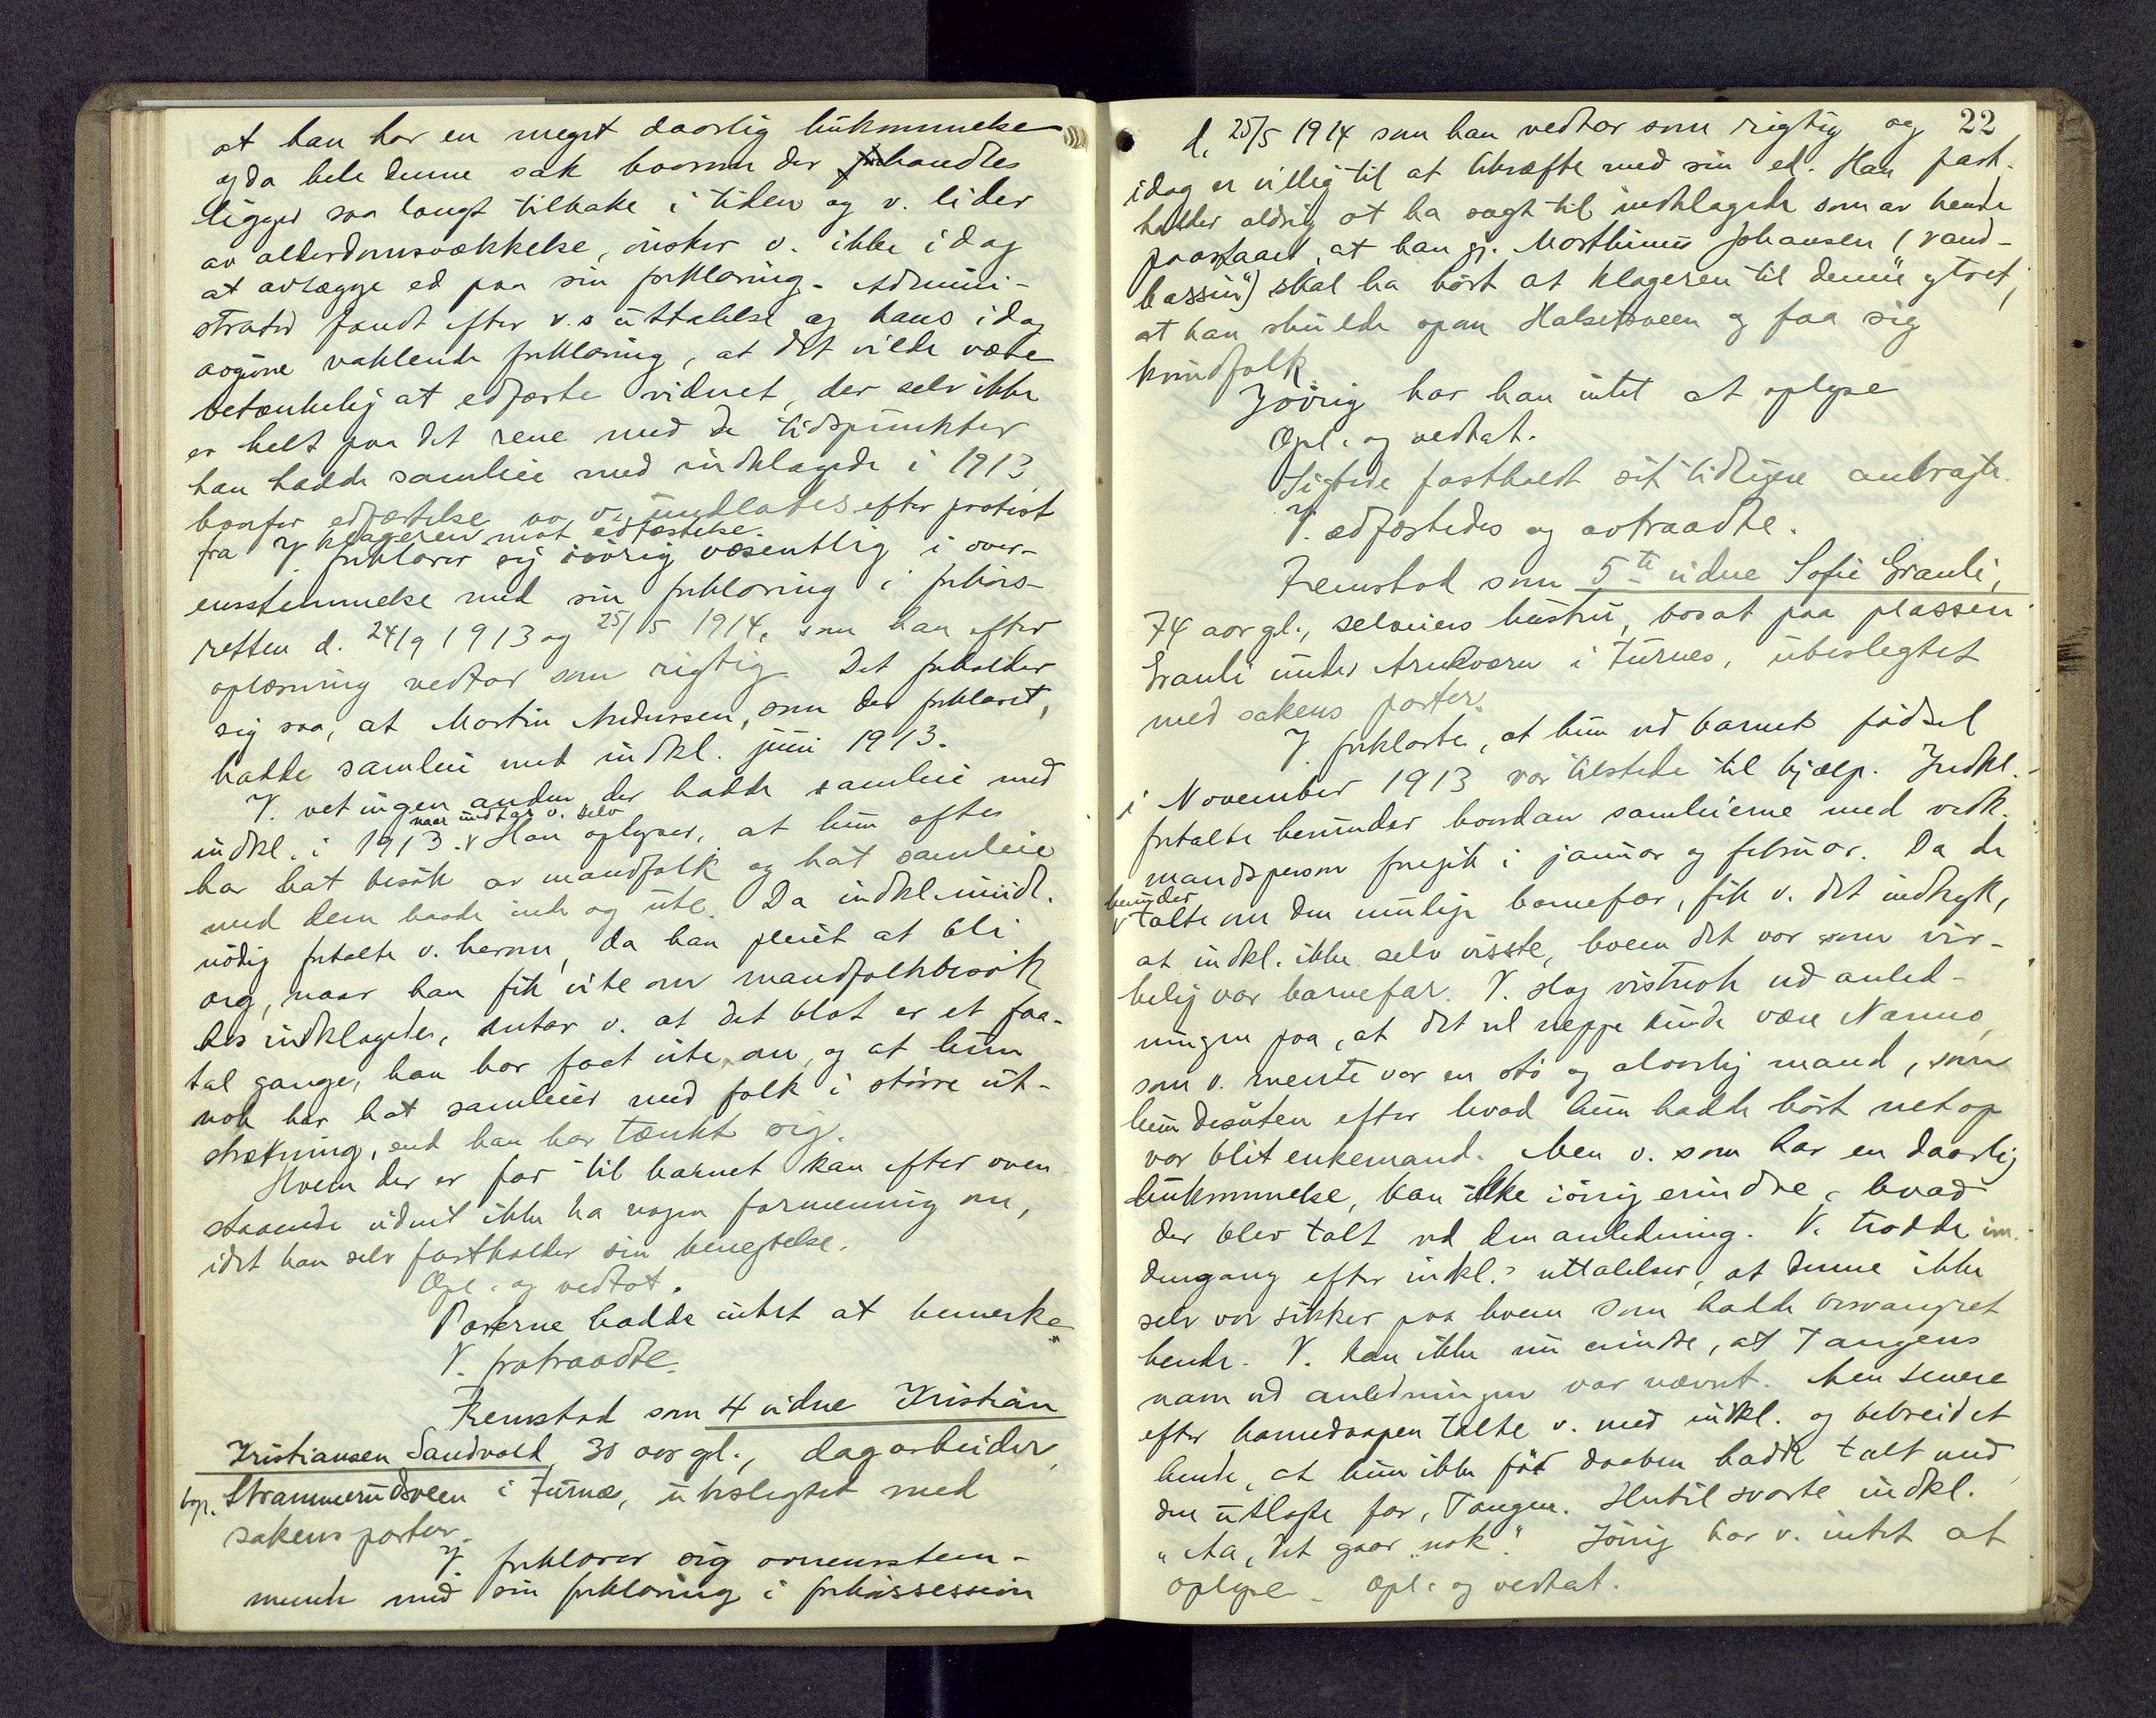 at han har en meget daarlig hukommelse
og da hele denne sak hvorom der forhandles
ligger saa langt tilbake i tiden og v. lider
av alderdomssvækkelse, ønsker v. ikke idag
at avlægge ed paa sin forklaring. Admini-
strator fandt efter v.s uttalelse og hans idag
avgivne vaklende forklaring, at det vilde være
betænkelig at edfæste vidnet, der selv ikke
er helt paa det rene med de tidspunkter
han hadde samleie med indklagede i 1913
hvorfor edfæstelse av v. undlates efter protest
fra klageren mot edfæstelse.
V. forklarer sig iøvrig væsentlig i over-
ensstemmelse med sin forklaring i forhørs-
retten d. 24/9 1913 og 25/5 1914, som han efter
oplæsning vedtar som rigtig. Det forholder
sig saa, at Martin Andersen, som der forklaret,
hadde samleie med indkl. juni 1913.
V. vet ingen anden der hadde samleie med
naar undtas v. selv
indkl. i 1913. v Han oplyser, at hun oftes
har hat besøk av mandfolk og hat samleie
med dem baade inde og ute. Da indkl.
nødig fortalte v. herom, da han pleiet at bli
arg, naar han fik vite om mandfolkbesøk
hos indklagede, antar v. at det blot er et faa-
tal gange, han har faat vite om, og at hun
nok har hat samleier med folk i større ut-
strækning, end han har tænkt sig.
Hvem der er far til barnet kan efter oven
staaende vidnet ikke ha nogen formening om,
idet han selv fastholder sin benegtelse.
Opl. og vedtat.
Parterne hadde intet at bemerke
V. fratraadte.
Fremstod som 4 vidne Kristian
Kristiansen Sandvold, 30 aar gl., dagarbeider,
bop. Strammerudsveen i Furnes, ubeslegtet med
sakens parter.
V. forklarer sig overensstem-
mende med sin forklaring i forhørssession
22
d. 25/5 1914 som han vedtar som rigtig og
idag er villig til at bekræfte med sin ed. Han fast-
holder aldrig at ha sagt til indklagede som av hende
paastaaet, at han gj. Marthinus Johansen (vand-
bassin") skal ha hørt at klageren til denne ytret,
at han skulde opom Halsetsveen og faa sig
kvindfolk.
Iøvrig har han intet at oplyse
Opl. og vedtat.
Sigtede fastholdt sit tidligere anbragte.
V. edfæstedes og avtraadte.
Fremstod som 5te vidne Sofie Granli,
74 aar gl., selveiers hustru, bosat paa plassen
Granli under Arnkværn i Furnes, ubeslegtet
med sakens parter.
V. forklarte, at hun ved barnets fødsel
i November 1913 var tilstede til hjælp. Indkl.
fortalte herunder hvordan samleierne med vedk.
mandsperson foregik i januar og februar. Da de
herunder
v talte om den mulige barnefar, fik v. det indtryk,
at indkl. ikke selv visste, hvem det var som vir-
kelig var barnefar. V. slog vistnok ved anled-
ningen paa, at det vel neppe kunde være Narmo,
som v. mente var en stø og alvorlig mand, som
hun desuten efter hvad hun hadde hørt netop
var blit enkemand. Men v. som har en daarlig
hukommelse, kan ikke iøvrig erindre, hvad
der blev talt ved den anledning. V. trodde im.
dengang efter indkl.s uttalelser, at denne ikke
selv var sikker paa hvem som hadde besvangret
hende. V. kan ikke nu erindre, at Tangens
navn ved anledningen var nævnt. Men senere
efter barnedaapen talte v. med indkl. og bebreidet
hende, at hun ikke før daaben hadde talt med
den utlagte far, Tangen. Hertil svarte indkl.
„Aa, det gaar nok." Iøvrig har v. intet at
oplyse. Opl. og vedtat.